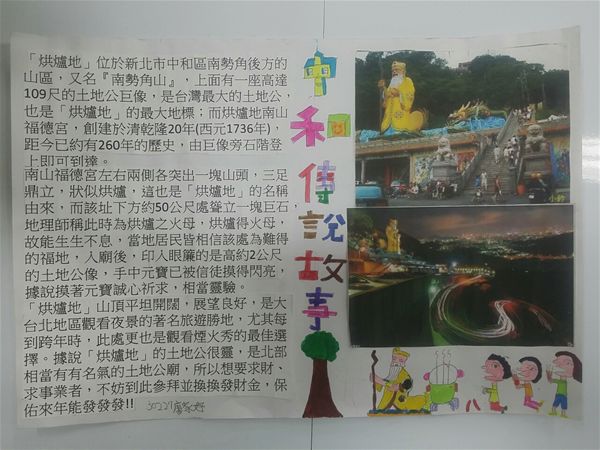 「烘爐地」位於新北市中和區南勢角後方的
山區，又名『南勢角山』，上面有一座高達
109尺的土地公巨像，是台灣最大的土地公，
也是「烘爐地」的最大地標；而烘爐地南山
福德宮，創建於清乾隆20年(西元1736年)，
距今已約有260年的歷史，由巨像旁石階登
上即可到達。
南山福德宮左右兩側各突出一塊山頭，三足
鼎立，狀似烘爐，這也是「烘爐地」的名稱
由來，而該址下方約50公尺處聳立一塊巨石，
地理師稱此時為烘爐之火母，烘爐得火母，
故能生生不息，當地居民皆相信該處為難得
的福地，入廟後，印入眼簾的是高約2公尺
的土地公像，手中元寶已被信徒摸得閃亮，
據說摸著元寶誠心祈求，相當靈驗。
「烘爐地」山頂平坦開闊，展望良好，是大
台北地區觀看夜景的著名旅遊勝地，尤其每
到跨年時，此處更也是觀看煙火秀的最佳選
擇。據說「烘爐地」的土地公很靈，是北部
相當有有名氣的土地公廟，所以想要求財、
求事業者，不妨到此參拜並換換發財金，保
佑來年能發發發!!
30229
中和傳說故事